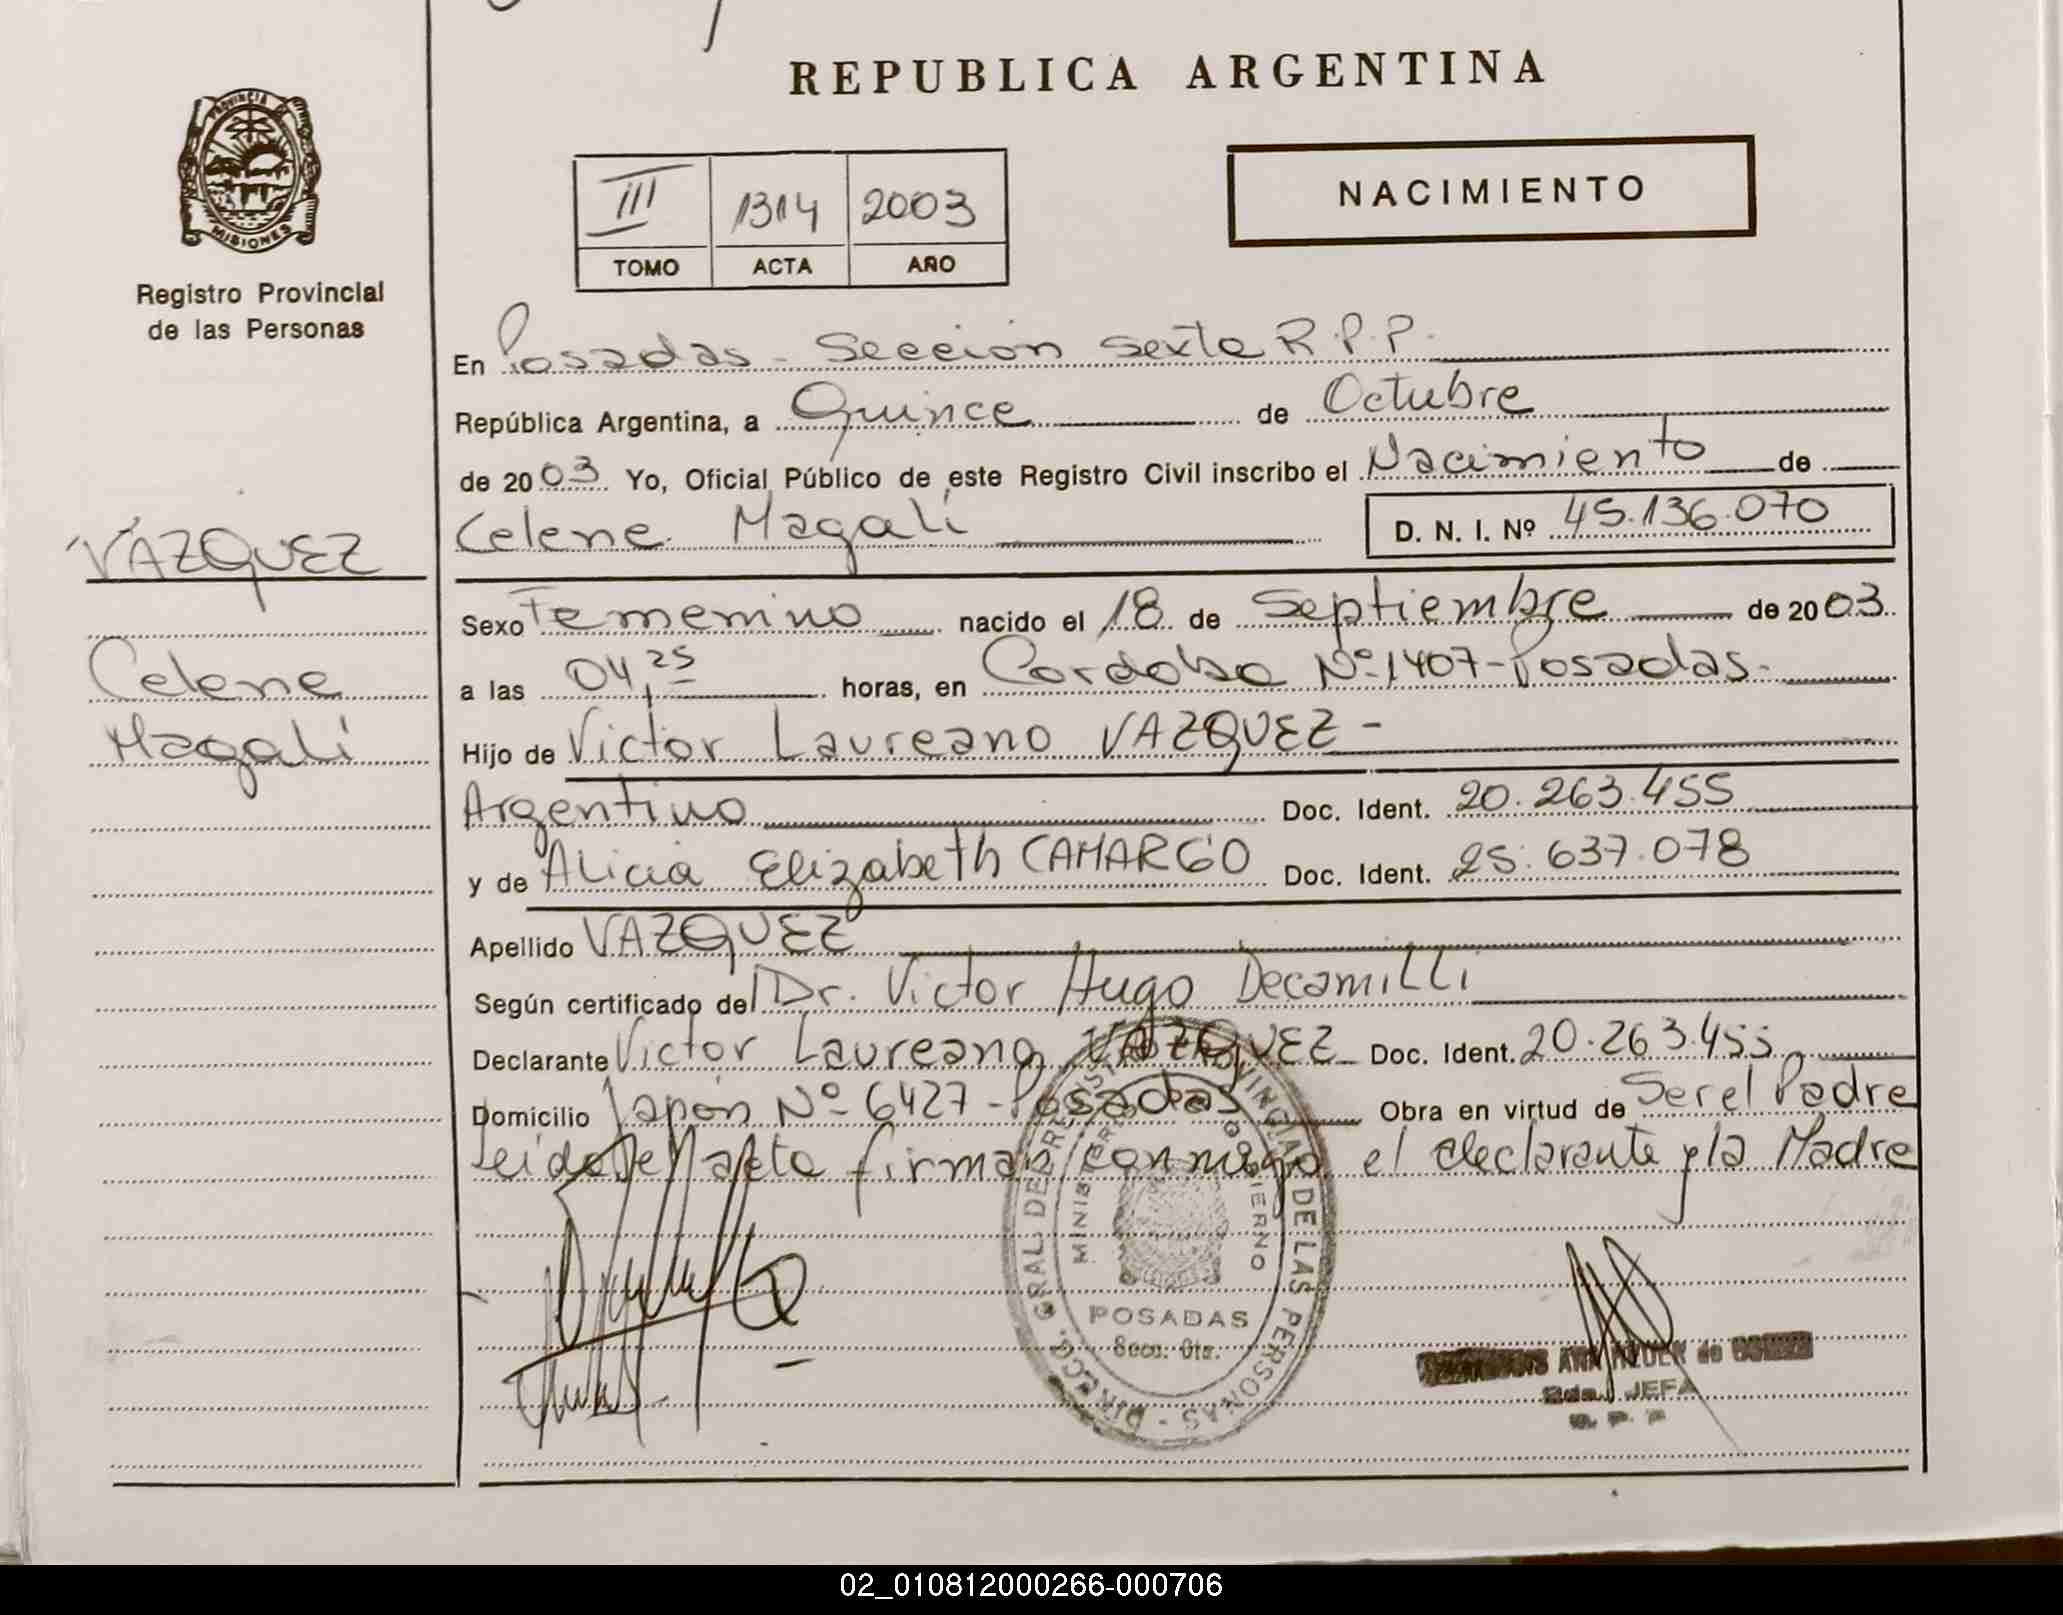 REPUBLICA ARGENTINA
PROVINCIA DE
MISIONES
Registro Provincial
de las Personas
III 1314 2003
TOMO ACTA AÑO
NACIMIENTO
En Posadas - Sección Sexta R.P.P.
República Argentina, a Quince de Octubre
de 2003 Yo, Oficial Público de este Registro Civil inscribo el Nacimiento de
Celene Magalí D. N. I. Nº 45.136.070
VAZQUEZ
Celene
Magalí
Sexo Femenino nacido el 18 de Septiembre de 2003
a las 04,25 horas, en Cordoba Nº 1407-Posadas-
Hijo de Victor Laureano VAZQUEZ -
Argentino Doc. Ident. 20.263.455
y de Alicia Elizabeth CAMARGO Doc. Ident. 25.637.078
Apellido VAZQUEZ
Según certificado del Dr. Victor Hugo Decamilli
Declarante Victor Laureano VAZQUEZ Doc. Ident. 20.263.455
Domicilio Japón Nº 6427-Posadas Obra en virtud de Ser el Padre
Leída el acta firman conmigo el declarante y la Madre
DIRECC. GRAL. DE REGISTRO PROVINCIAL DE LAS PERSONAS
MINISTERIO GOBIERNO
POSADAS
Secc. 6ta.
ANA de
JEFA
02_010812000266-000706